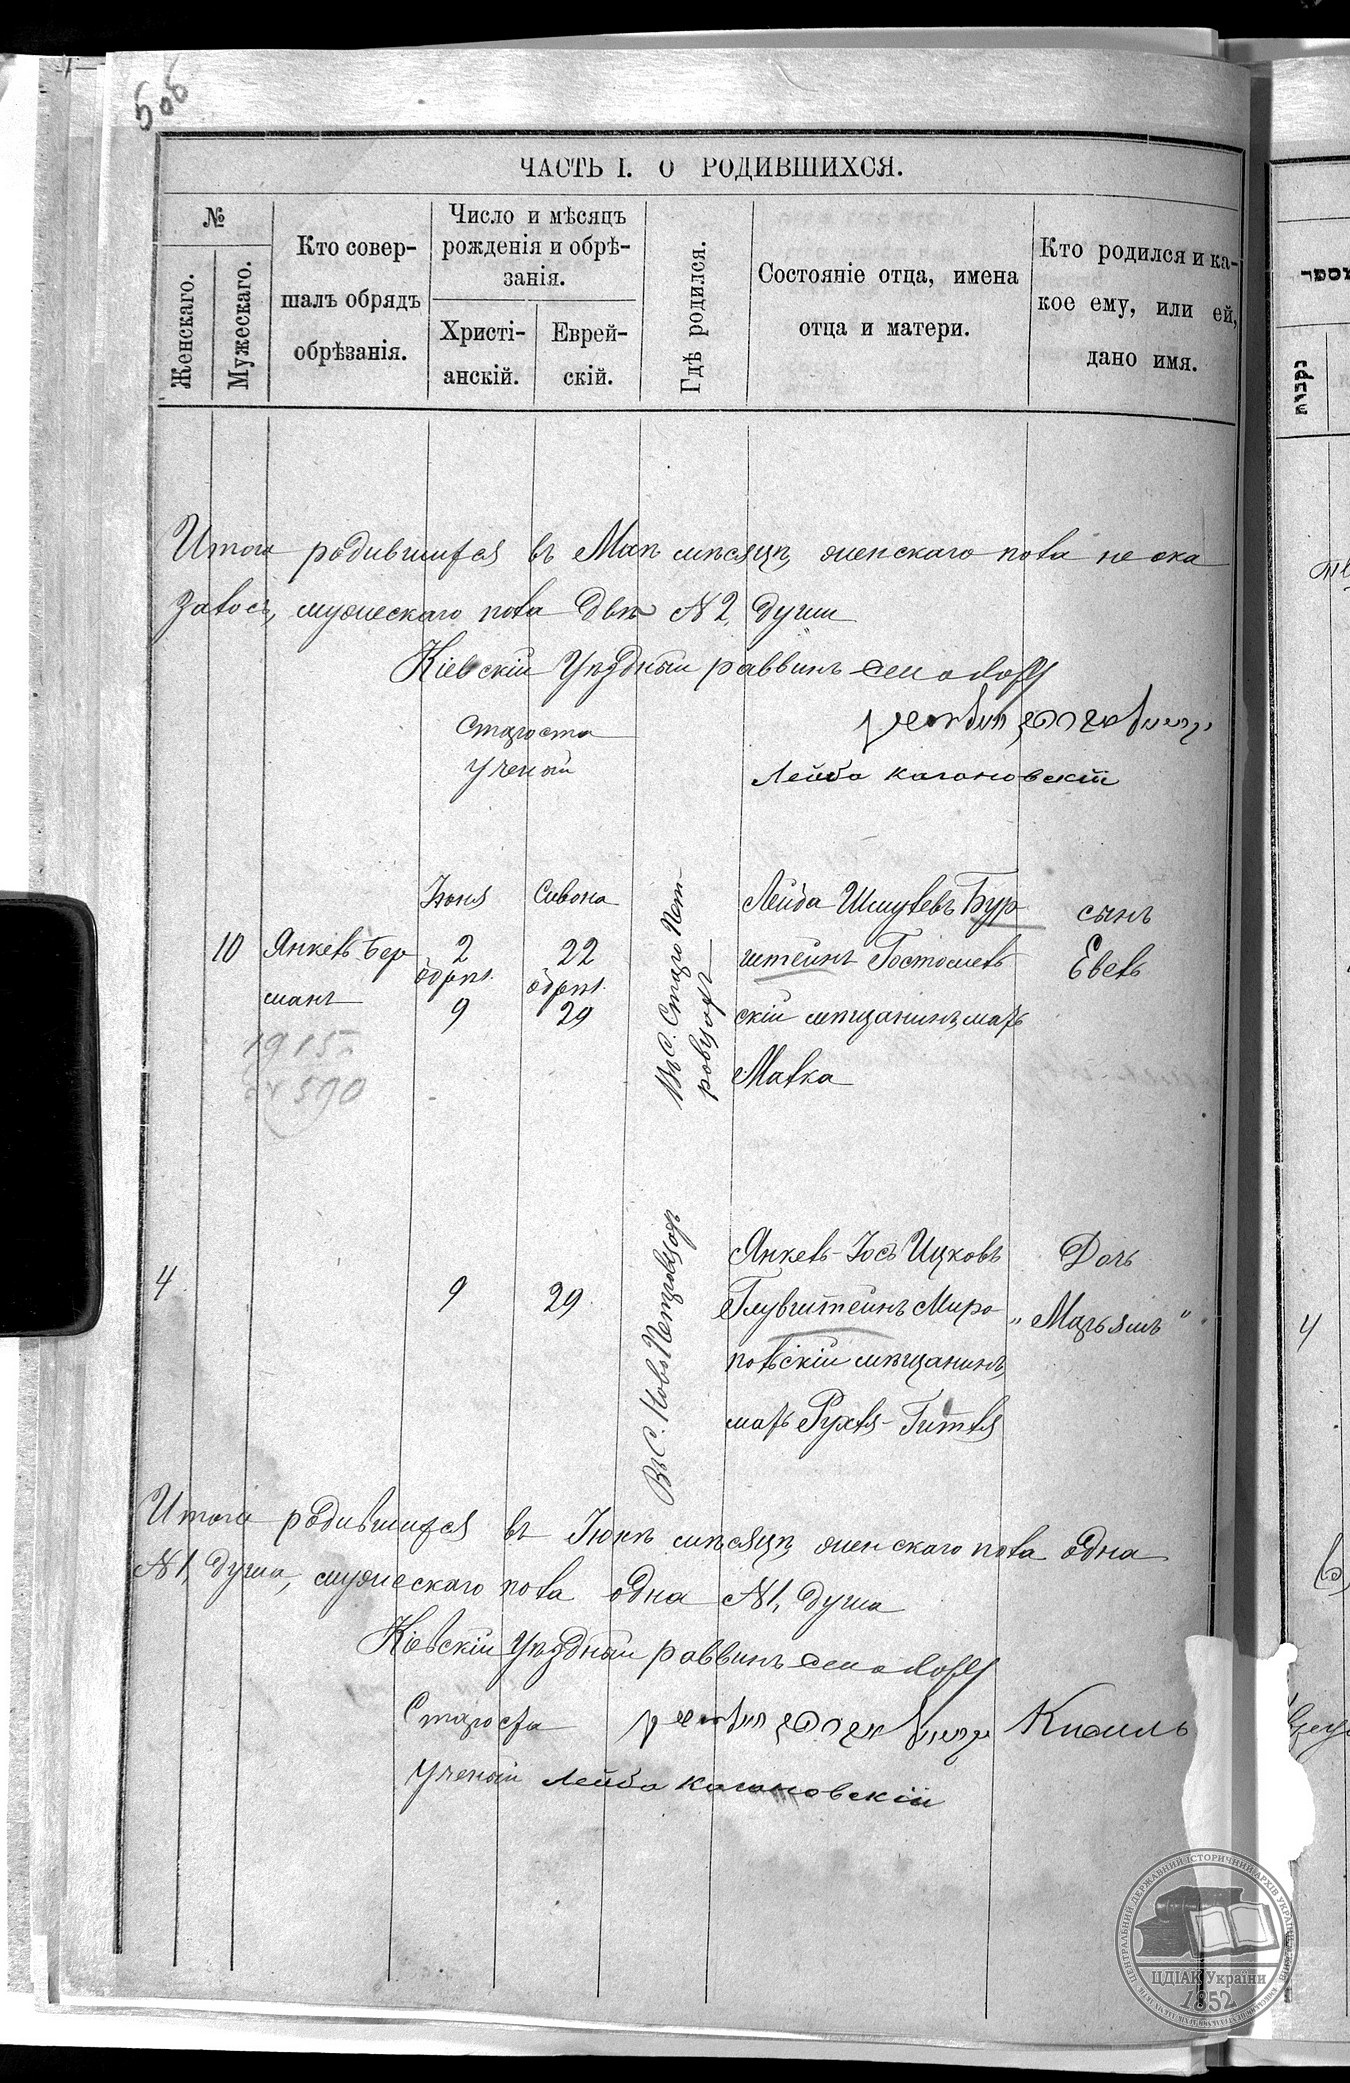 508
ЧАСТЬ I. О РОДИВШИХСЯ.
№
Женскаго.
Мужескаго.
Кто совер-
шалъ обрядъ
обрѣзанія.
Число и мѣсяцъ
рожденія и обрѣ-
занія.
Христі-
анскій.
Еврей-
скій.
Гдѣ родился.
Состояніе отца, имена
отца и матери.
Кто родился и ка-
кое ему, или ей,
дано имя.
Итого родившихся въ Маѣ мѣсяцѣ, женскаго пола не ока
залось, мужескаго пола двѣ №2, души
Кіевскій Уѣздный раввинъ
Староста
Ученый Лейба Кагановскій
10
Янкель Бер
манъ
1915 г.
590
Іюня
2
обрѣз.
9
Сивона
22
обрѣз.
29
Въ С. Старо Пет-
ровцахъ
Лейба Шмулевъ Бур
штейнъ Гостомель
скій мѣщанинъ, мать
Малка
сынъ
Евель
4
9
29
Въ С. Ново Петровцахъ
Янкель-Іосъ Ицковъ
Глувштейнъ Миро
польскій мѣщанинъ,
мать Рухля-Гитля
Дочь
„Марьямъ"
Итого родившихся въ Іюнѣ мѣсяцѣ, женскаго пола одна
№1, душа, мужескаго пола одна №1, душа
Кіевскій Уѣздный раввинъ
Староста
Ученый Лейба Кагановскій
4
מספר
נקבות
ЦЕНТРАЛЬНИЙ ДЕРЖАВНИЙ ІСТОРИЧНИЙ АРХІВ УКРАЇНИ
ЦДІАК України
1852